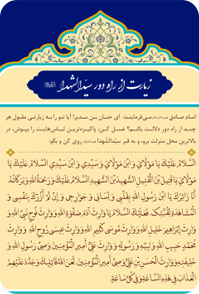 زیارت از راه دور سیّدالشهدا
امام صادق می‌فرمایند: ای حنان بن سدیر! آیا تو را به زیارتی مقبول هر
چند از راه دور دلالت بکنم؟ غسل کن، پاکیزه‌ترین لباس‌هایت را بپوش، در
بالاترین محل منزلت برو، و به قبر سیّدالشهدا روی کن و بگو:
السَّلَامُ عَلَيْكَ يَا مَوْلَايَ وَابْنَ مَوْلَايَ وَ سَيِّدِي وَابْنَ سَيِّدِي السَّلَامُ عَلَيْكَ يَا
مَوْلَايَ يَا قَتِيلَ بْنَ الْقَتِيلِ الشَّهِيدَ بْنَ الشَّهِيدِ السَّلَامُ عَلَيْكَ وَ رَحْمَةُ اللَّهِ وَ بَرَكَاتُهُ
أَنَا زَائِرُكَ يَا ابْنَ رَسُولِ اللَّهِ بِقَلْبِي وَ لِسَانِي وَ جَوَارِحِي وَ إِنْ لَمْ أَزُرْكَ بِنَفْسِي وَ
الْمُشَاهَدَةِ لِقُبَّتِكَ فَعَلَيْكَ السَّلَامُ يَا وَارِثَ آدَمَ صَفْوَةِ اللَّهِ وَ وَارِثَ نُوحٍ نَبِيِّ اللَّهِ وَ
وَارِثَ إِبْرَاهِيمَ خَلِيلِ اللَّهِ وَ وَارِثَ مُوسَى كَلِيمِ اللَّهِ وَ وَارِثَ عِيسَى رُوحِ اللَّهِ وَ وَارِثَ
مُحَمَّدٍ حَبِيبِ اللَّهِ وَ نَبِيِّهِ وَ رَسُولِهِ وَ وَارِثَ عَلِيٍّ أَمِيرِ الْمُؤْمِنِينَ وَ وَصِيِّ رَسُولِ اللَّهِ وَ
وَارِثَ الْحَسَنِ بْنِ عَلِيٍّ وَصِيِّ أَمِيرِ الْمُؤْمِنِينَ. لَعَنَ اللَّهُ قَاتِلَكَ وَ جَدَّدَ عَلَيْهِمُ
الْعَذَابَ فِي هَذِهِ السَّاعَةِ وَ فِي كُلِّ سَاعَةٍ.